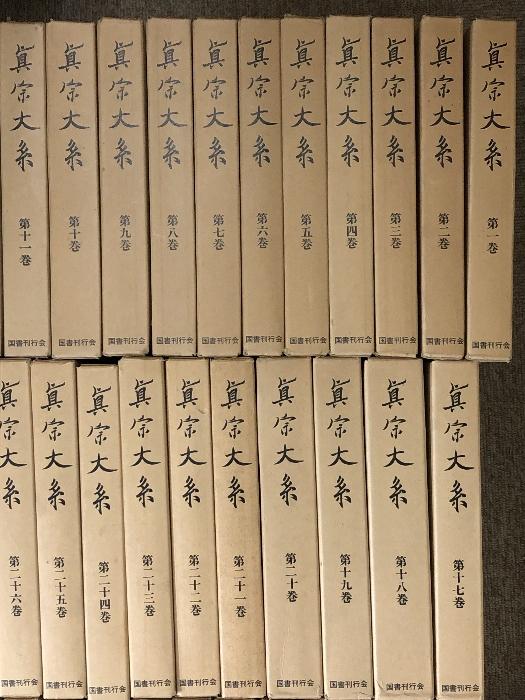 真宗大系 第一巻 国書刊行会
真宗大系 第二巻 国書刊行会
真宗大系 第三巻 国書刊行会
真宗大系 第四巻 国書刊行会
真宗大系 第五巻 国書刊行会
真宗大系 第六巻 国書刊行会
真宗大系 第七巻 国書刊行会
真宗大系 第八巻 国書刊行会
真宗大系 第九巻 国書刊行会
真宗大系 第十巻 国書刊行会
真宗大系 第十一巻 国書刊行会
眞宗大系 第十七巻 国書刊行会
眞宗大系 第十八巻 国書刊行会
眞宗大系 第十九巻 国書刊行会
眞宗大系 第二十巻 国書刊行会
眞宗大系 第二十一巻 国書刊行会
眞宗大系 第二十二巻 国書刊行会
眞宗大系 第二十三巻 国書刊行会
眞宗大系 第二十四巻 国書刊行会
眞宗大系 第二十五巻 国書刊行会
眞宗大系 第二十六巻 国書刊行会